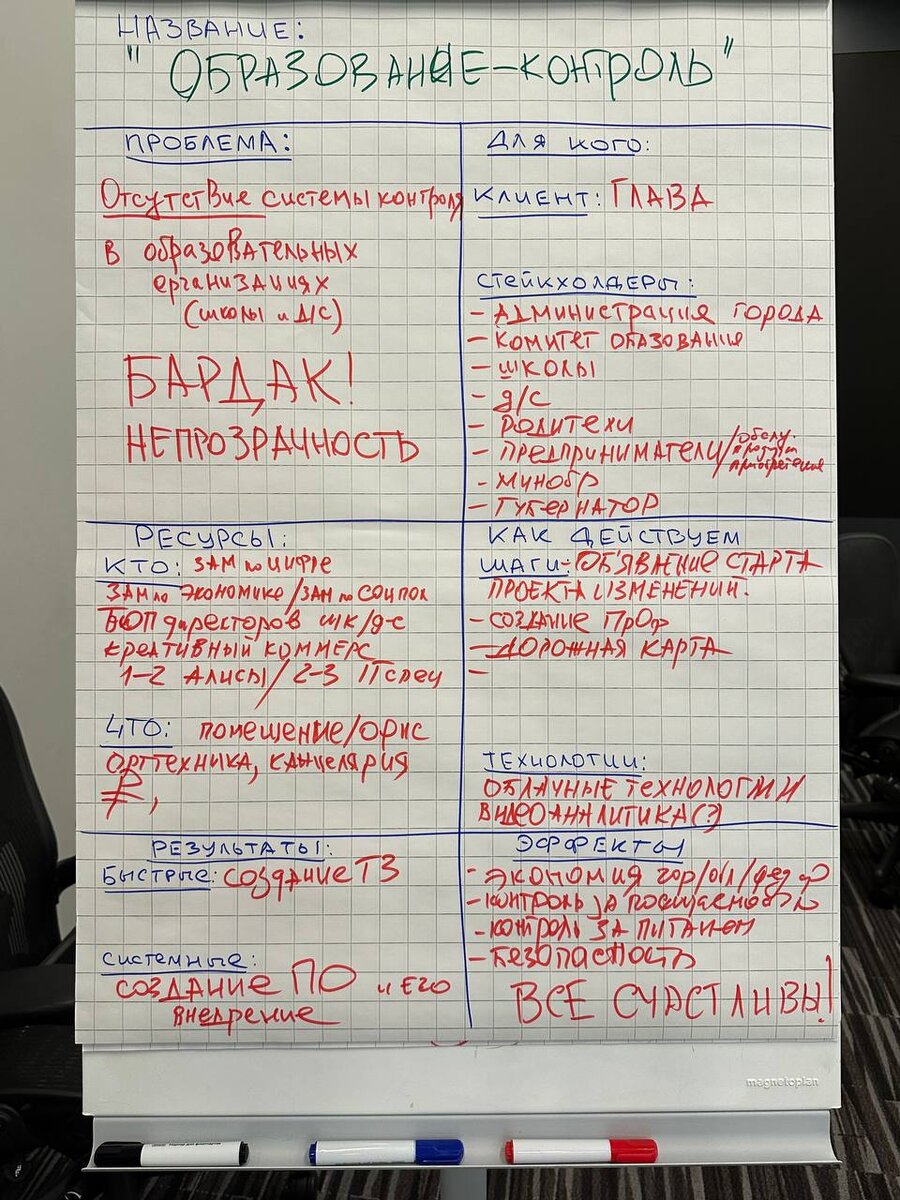 НАЗВАНИЕ:
"ОБРАЗОВАНИЕ-КОНТРОЛЬ"
ПРОБЛЕМА:
Отсутствие системы контроля
в образовательных
организациях
(школы и Д/С)
БАРДАК!
НЕПРОЗРАЧНОСТЬ
ДЛЯ КОГО:
КЛИЕНТ: ГЛАВА
СТЕЙКХОЛДЕРЫ:
- АДМИНИСТРАЦИЯ ГОРОДА
- КОМИТЕТ ОБАЗОВАНИЯ
- ШКОЛЫ
- д/с
- РОДИТЕЛИ
- ПРЕДПРИНИМАТЕЛИ/
- МИНОБР
- ГУБЕРНАТОР
РЕСУРСЫ:
КТО: ЗАМ по ЦИФРЕ
ЗАМ по ЭКОНОМИКЕ/ЗАМ по СОЦПОЛ
директоров шк/д-с
КРЕАТИВНЫЙ КОММЕРС
1-2 АЛИСЫ/2-3 ITспец
ЧТО: ПОМЕЩЕНИЕ/ОФИС
ОРГТЕХНИКА, КАНЦЕЛЯРИЯ
₽,
КАК ДЕЙСТВУЕМ
ШАГИ:- ОБ'ЯВЛЕНИЕ СТАРТА
ПРОЕКТА ИЗМЕНЕНИЙ.
- СОЗДАНИЕ ПРОФ
- ДОРОЖНАЯ КАРТА
-
ТЕХНОЛОГИИ:
ОБЛАЧНЫЕ ТЕХНОЛОГИИ
ВИДЕОАНАЛИТИКА(?)
РЕЗУЛЬТАТЫ:
БЫСТРЫЕ: СОЗДАНИЕ ТЗ
СИСТЕМНЫЕ:
СОЗДАНИЕ ПО и ЕГО
ВНЕДРЕНИЕ
ЭФФЕКТЫ
- ЭКОНОМИЯ гор/обл/фед
- КОНТРОЛЬ ЗА ПОСЕЩАЕМОСТЬЮ
- КОНТРОЛЬ ЗА ПИТАНИЕМ
- БЕЗОПАСНОСТЬ
ВСЕ СЧАСТЛИВЫ!
magnetoplan